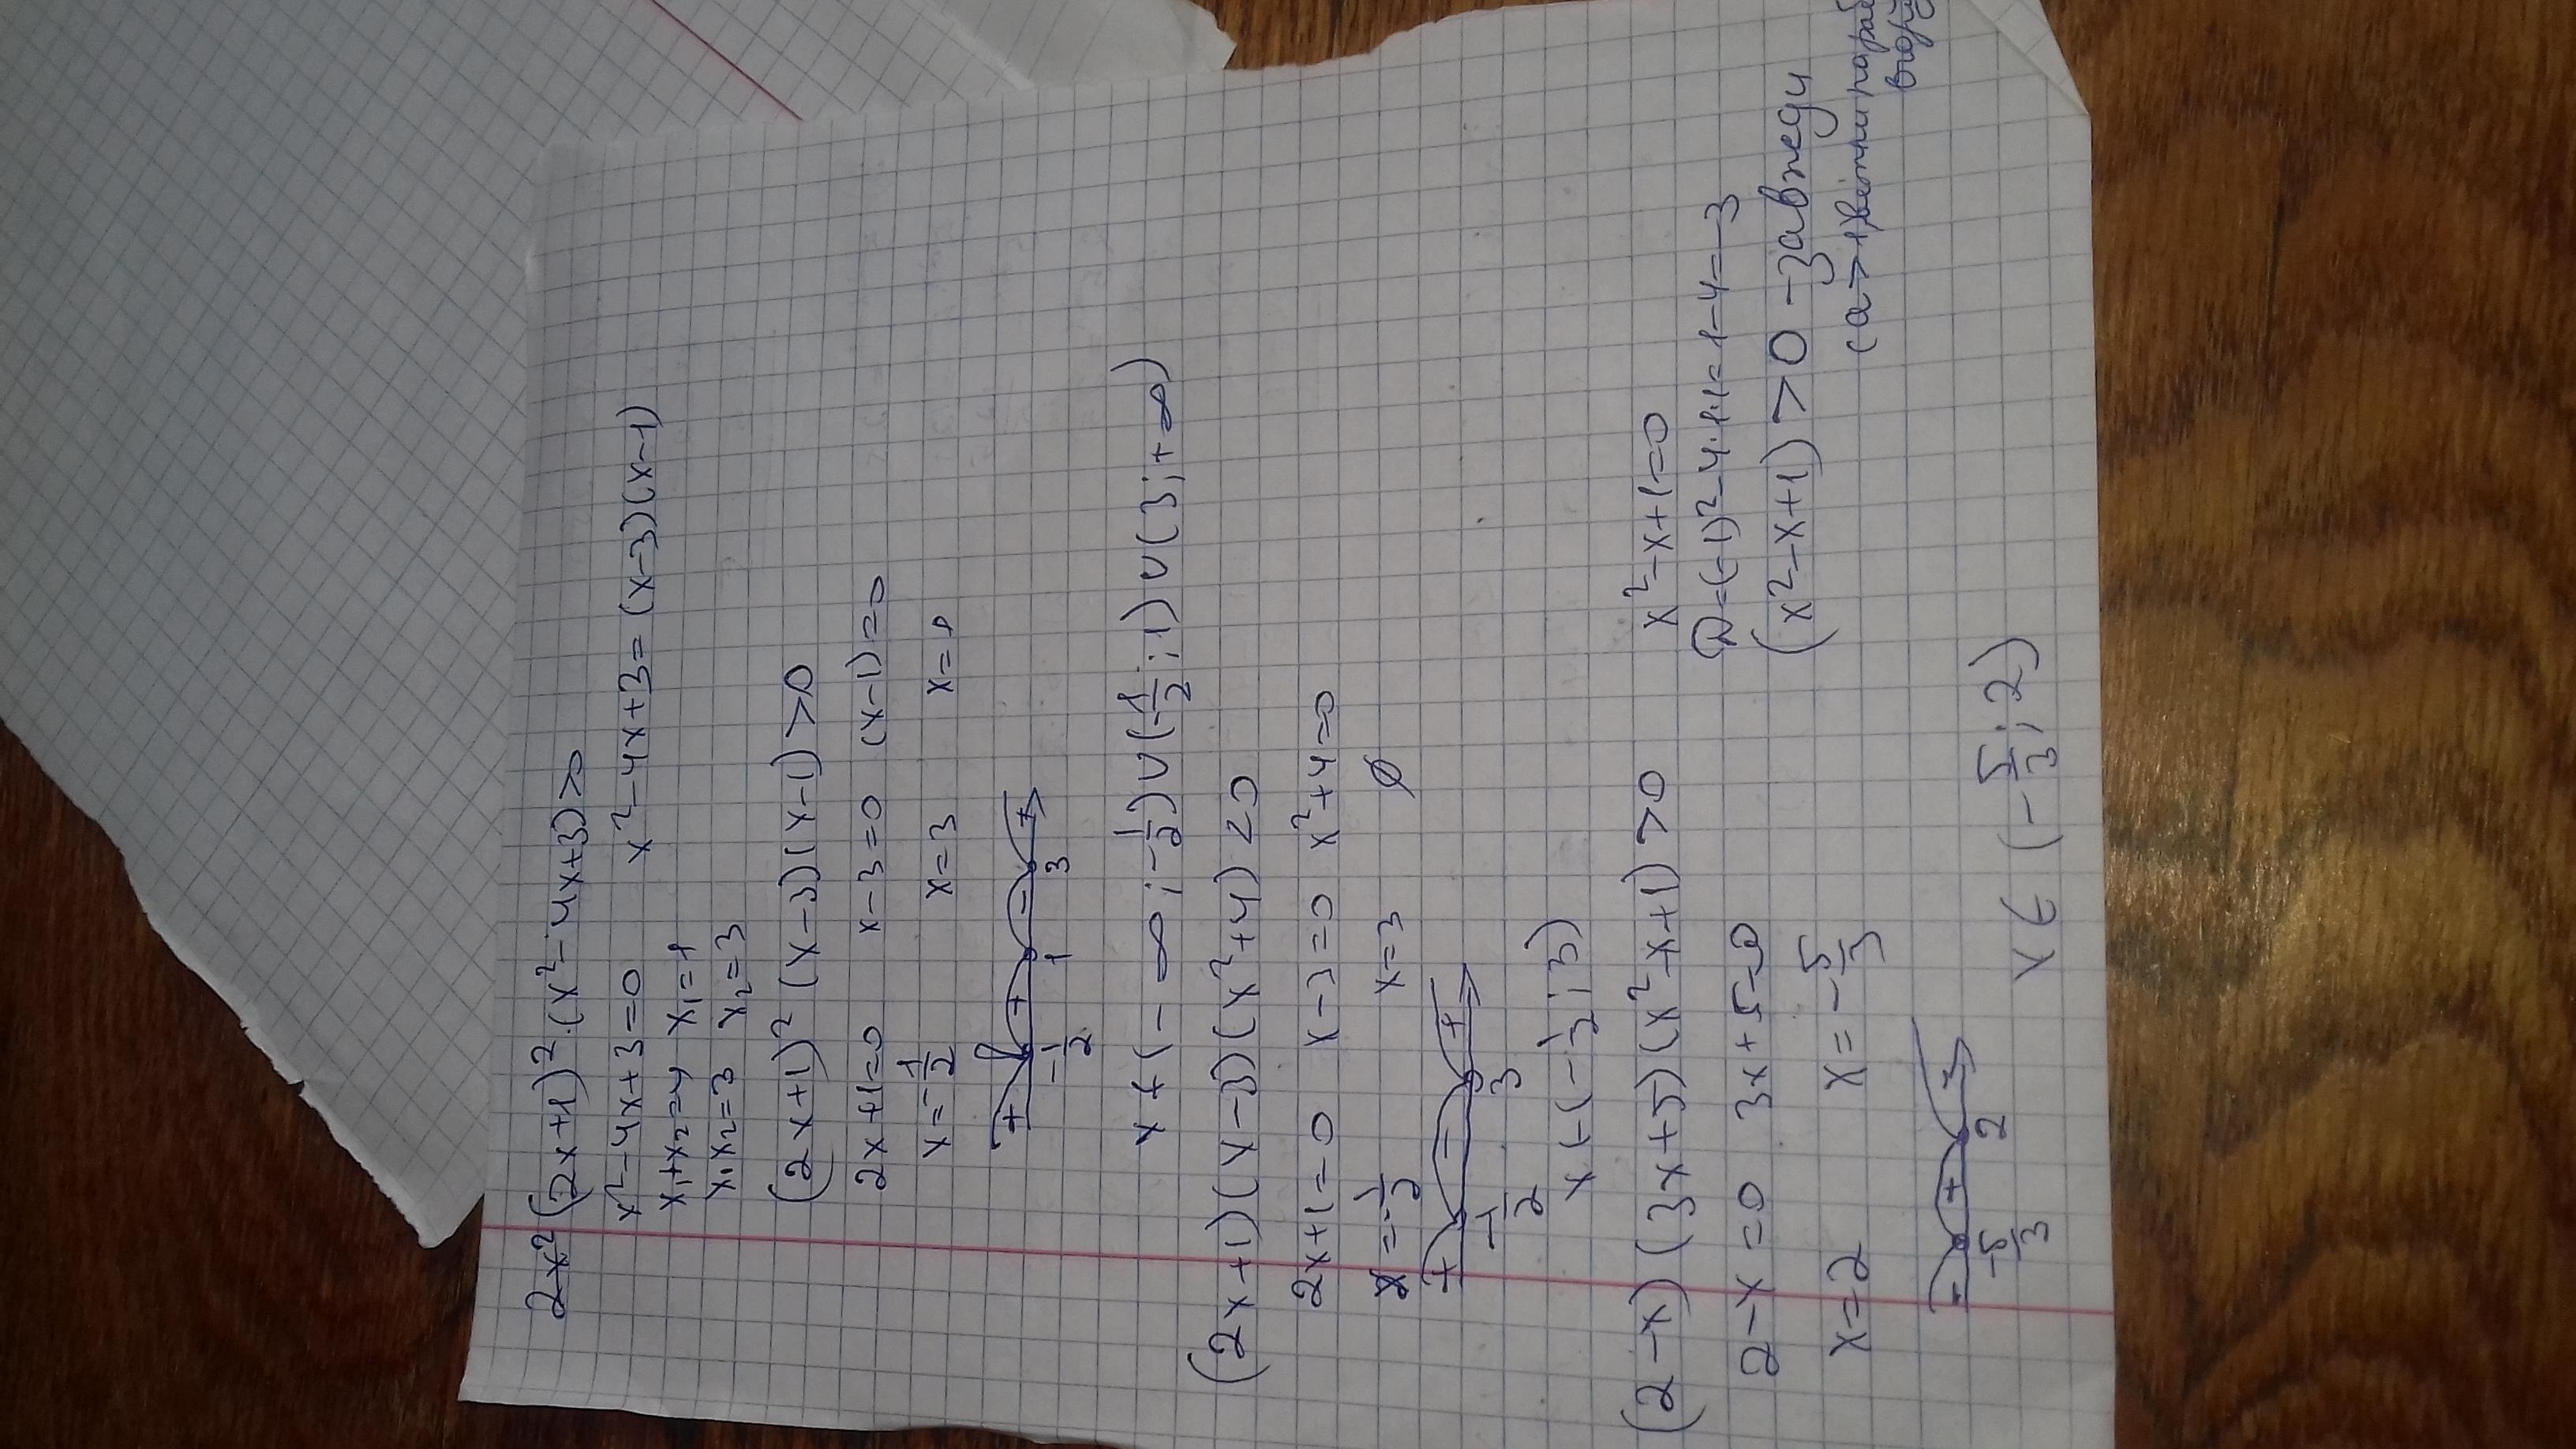 2x² (2x+1)²·(x²-4x+3)>0
x²-4x+3=0 x²-4x+3=(x-3)(x-1)
x₁+x₂=4 x₁=1
x₁x₂=3 x₂=3
(2x+1)²(x-3)(x-1)>0
2x+1=0 x-3=0 (x-1)=0
x=-1/2 x=3 x=1
+ + - +
-1/2 1 3
x ∈ (-∞; -1/2)∪(-1/2; 1)∪(3; +∞)
(2x+1)(x-3)(x²+4)<0
2x+1=0 x-3=0 x²+4=0
x=-1/2 x=3 ∅
+ - +
-1/2 3
x ∈ (-1/2; 3)
(2-x)(3x+5)(x²-x+1)>0 x²-x+1=0
2-x=0 3x+5=0 D=(-1)²-4·1·1=1-4=-3
x=2 x=-5/3 (x²-x+1)>0 - завжди
(a>1, вітки
- + -
-5/3 2
x ∈ (-5/3; 2)